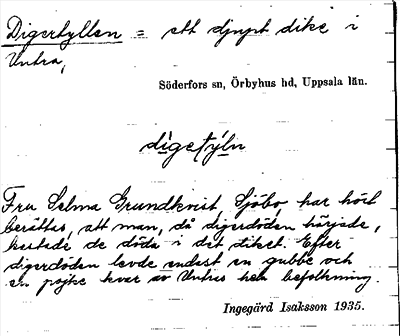 Digertyllen = ett djupt dike i
Untra,
Söderfors sn, Örbyhus hd, Uppsala län.
digetyln
Fru Selma Grundkvist Sjöbo har hört
berättas, att man, då digerdöden härjade,
kastade de döda i det diket. Efter
digerdöden levde endast en gubbe och
en pojke kvar av Untras hela befolkning.
Ingegärd Isaksson 1935.